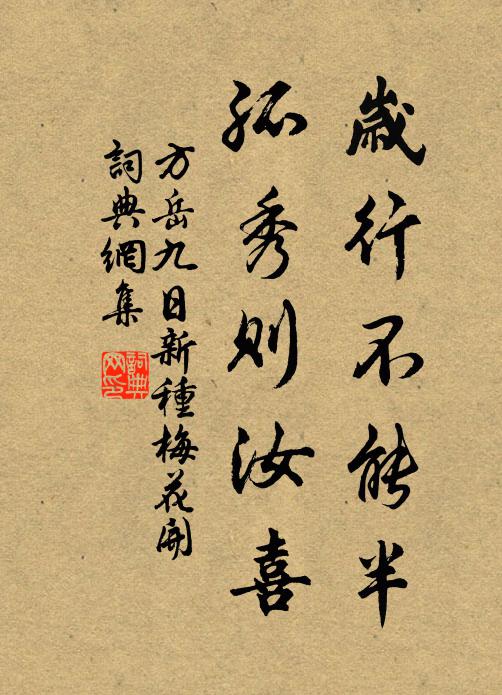 歲行不能半
孤秀則汝喜
方岳九日新種梅花開
詞典網集
詞典网印